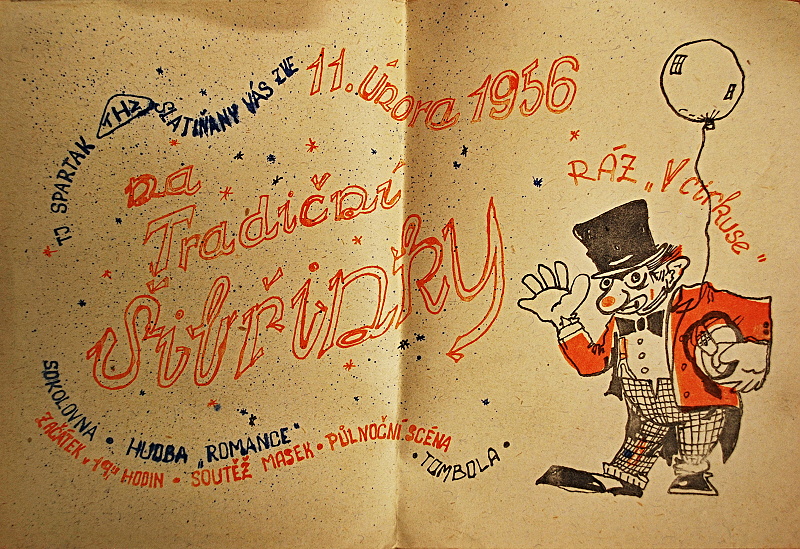 TJ SPARTAK THZ SLATIŇANY VÁS ZVE
11. února 1956
na
Tradiční
Šibřinky
RÁZ „V cirkuse"
SOKOLOVNA • HUDBA „ROMANCE"
ZAČÁTEK v 19ºº HODIN • SOUTĚŽ MASEK • PŮLNOČNÍ SCÉNA
• TOMBOLA •